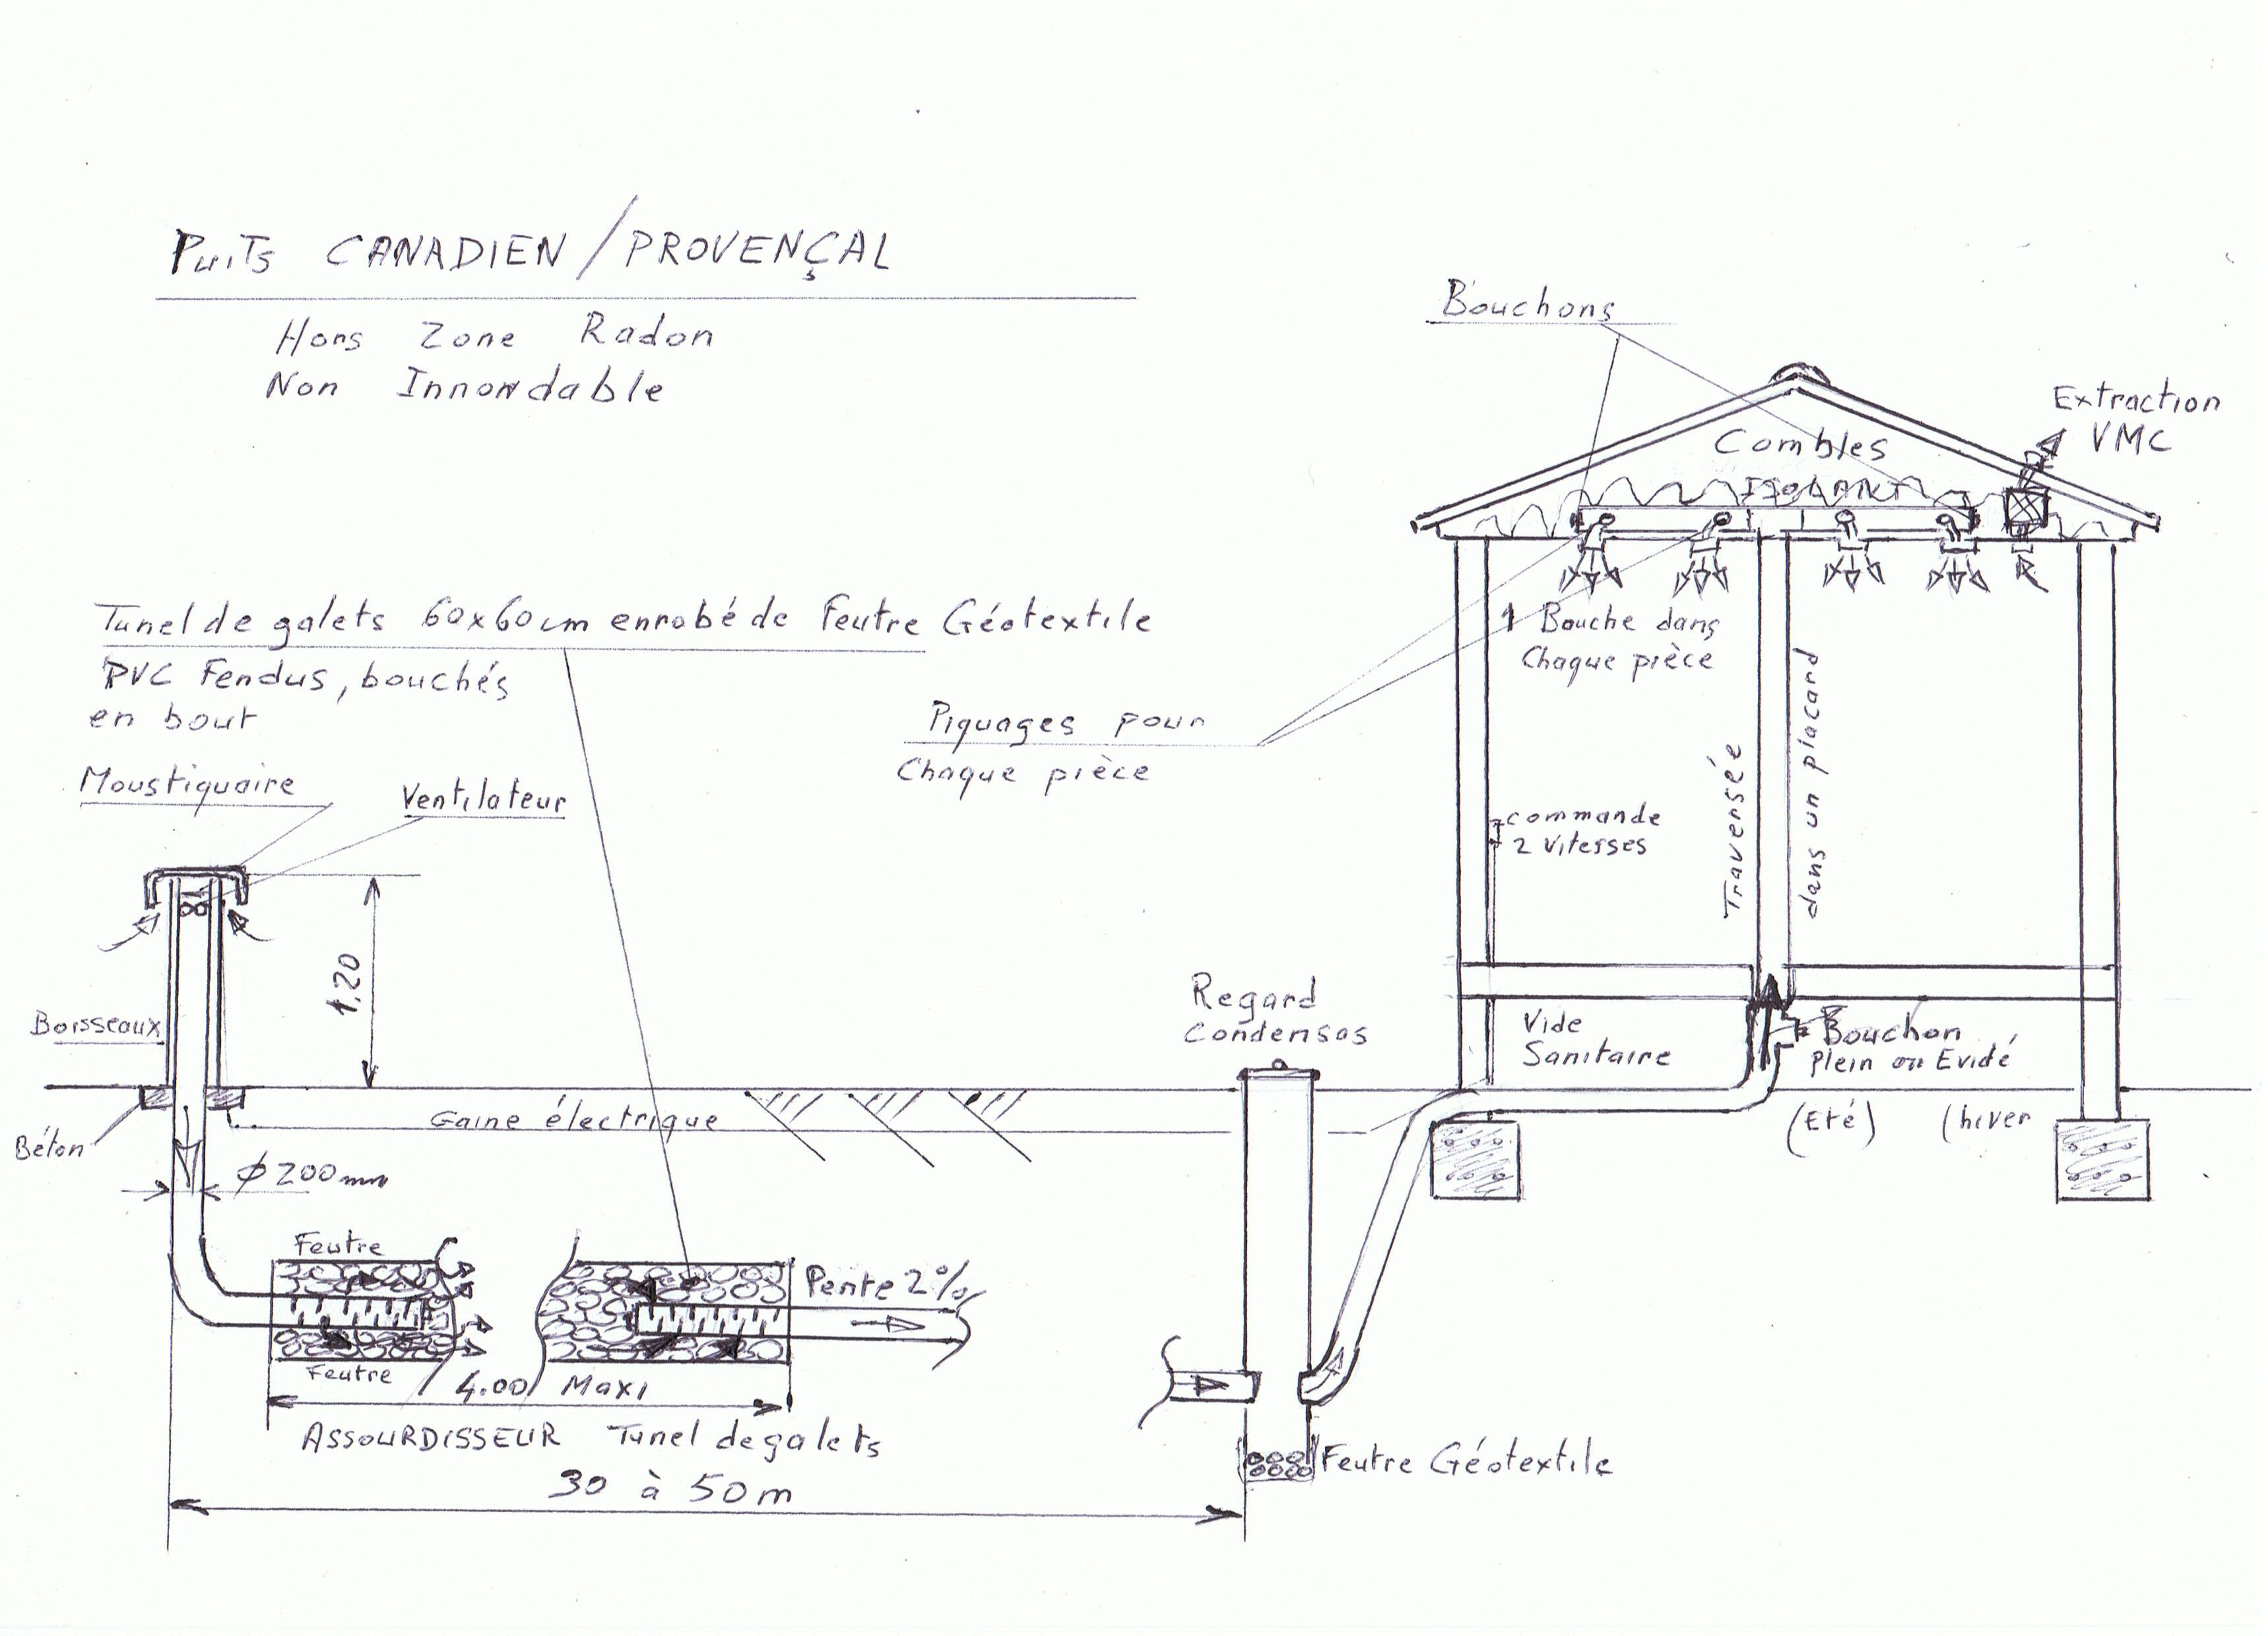 Puits CANADIEN / PROVENÇAL
Hors Zone Radon
Non Innondable
Bouchons
Extraction
VMC
Combles
ISOLANT
Tunel de galets 60x60cm enrobé de Feutre Géotextile
PVC Fendus, bouchés
en bout
1 Bouche dans
Chaque pièce
Piquages pour
Chaque pièce
Moustiquaire
Ventilateur
commande
2 Vitesses
Traversée
dans un placard
1,20
Boisseaux
Regard
Condensas
Vide
Sanitaire
Bouchon
Plein ou Evidé
(Eté) (hiver
Gaine électrique
Béton
ϕ 200 mm
Feutre
Pente 2%
Feutre
4.00 Maxi
ASSOURDISSEUR Tunel de galets
Feutre Géotextile
30 à 50m